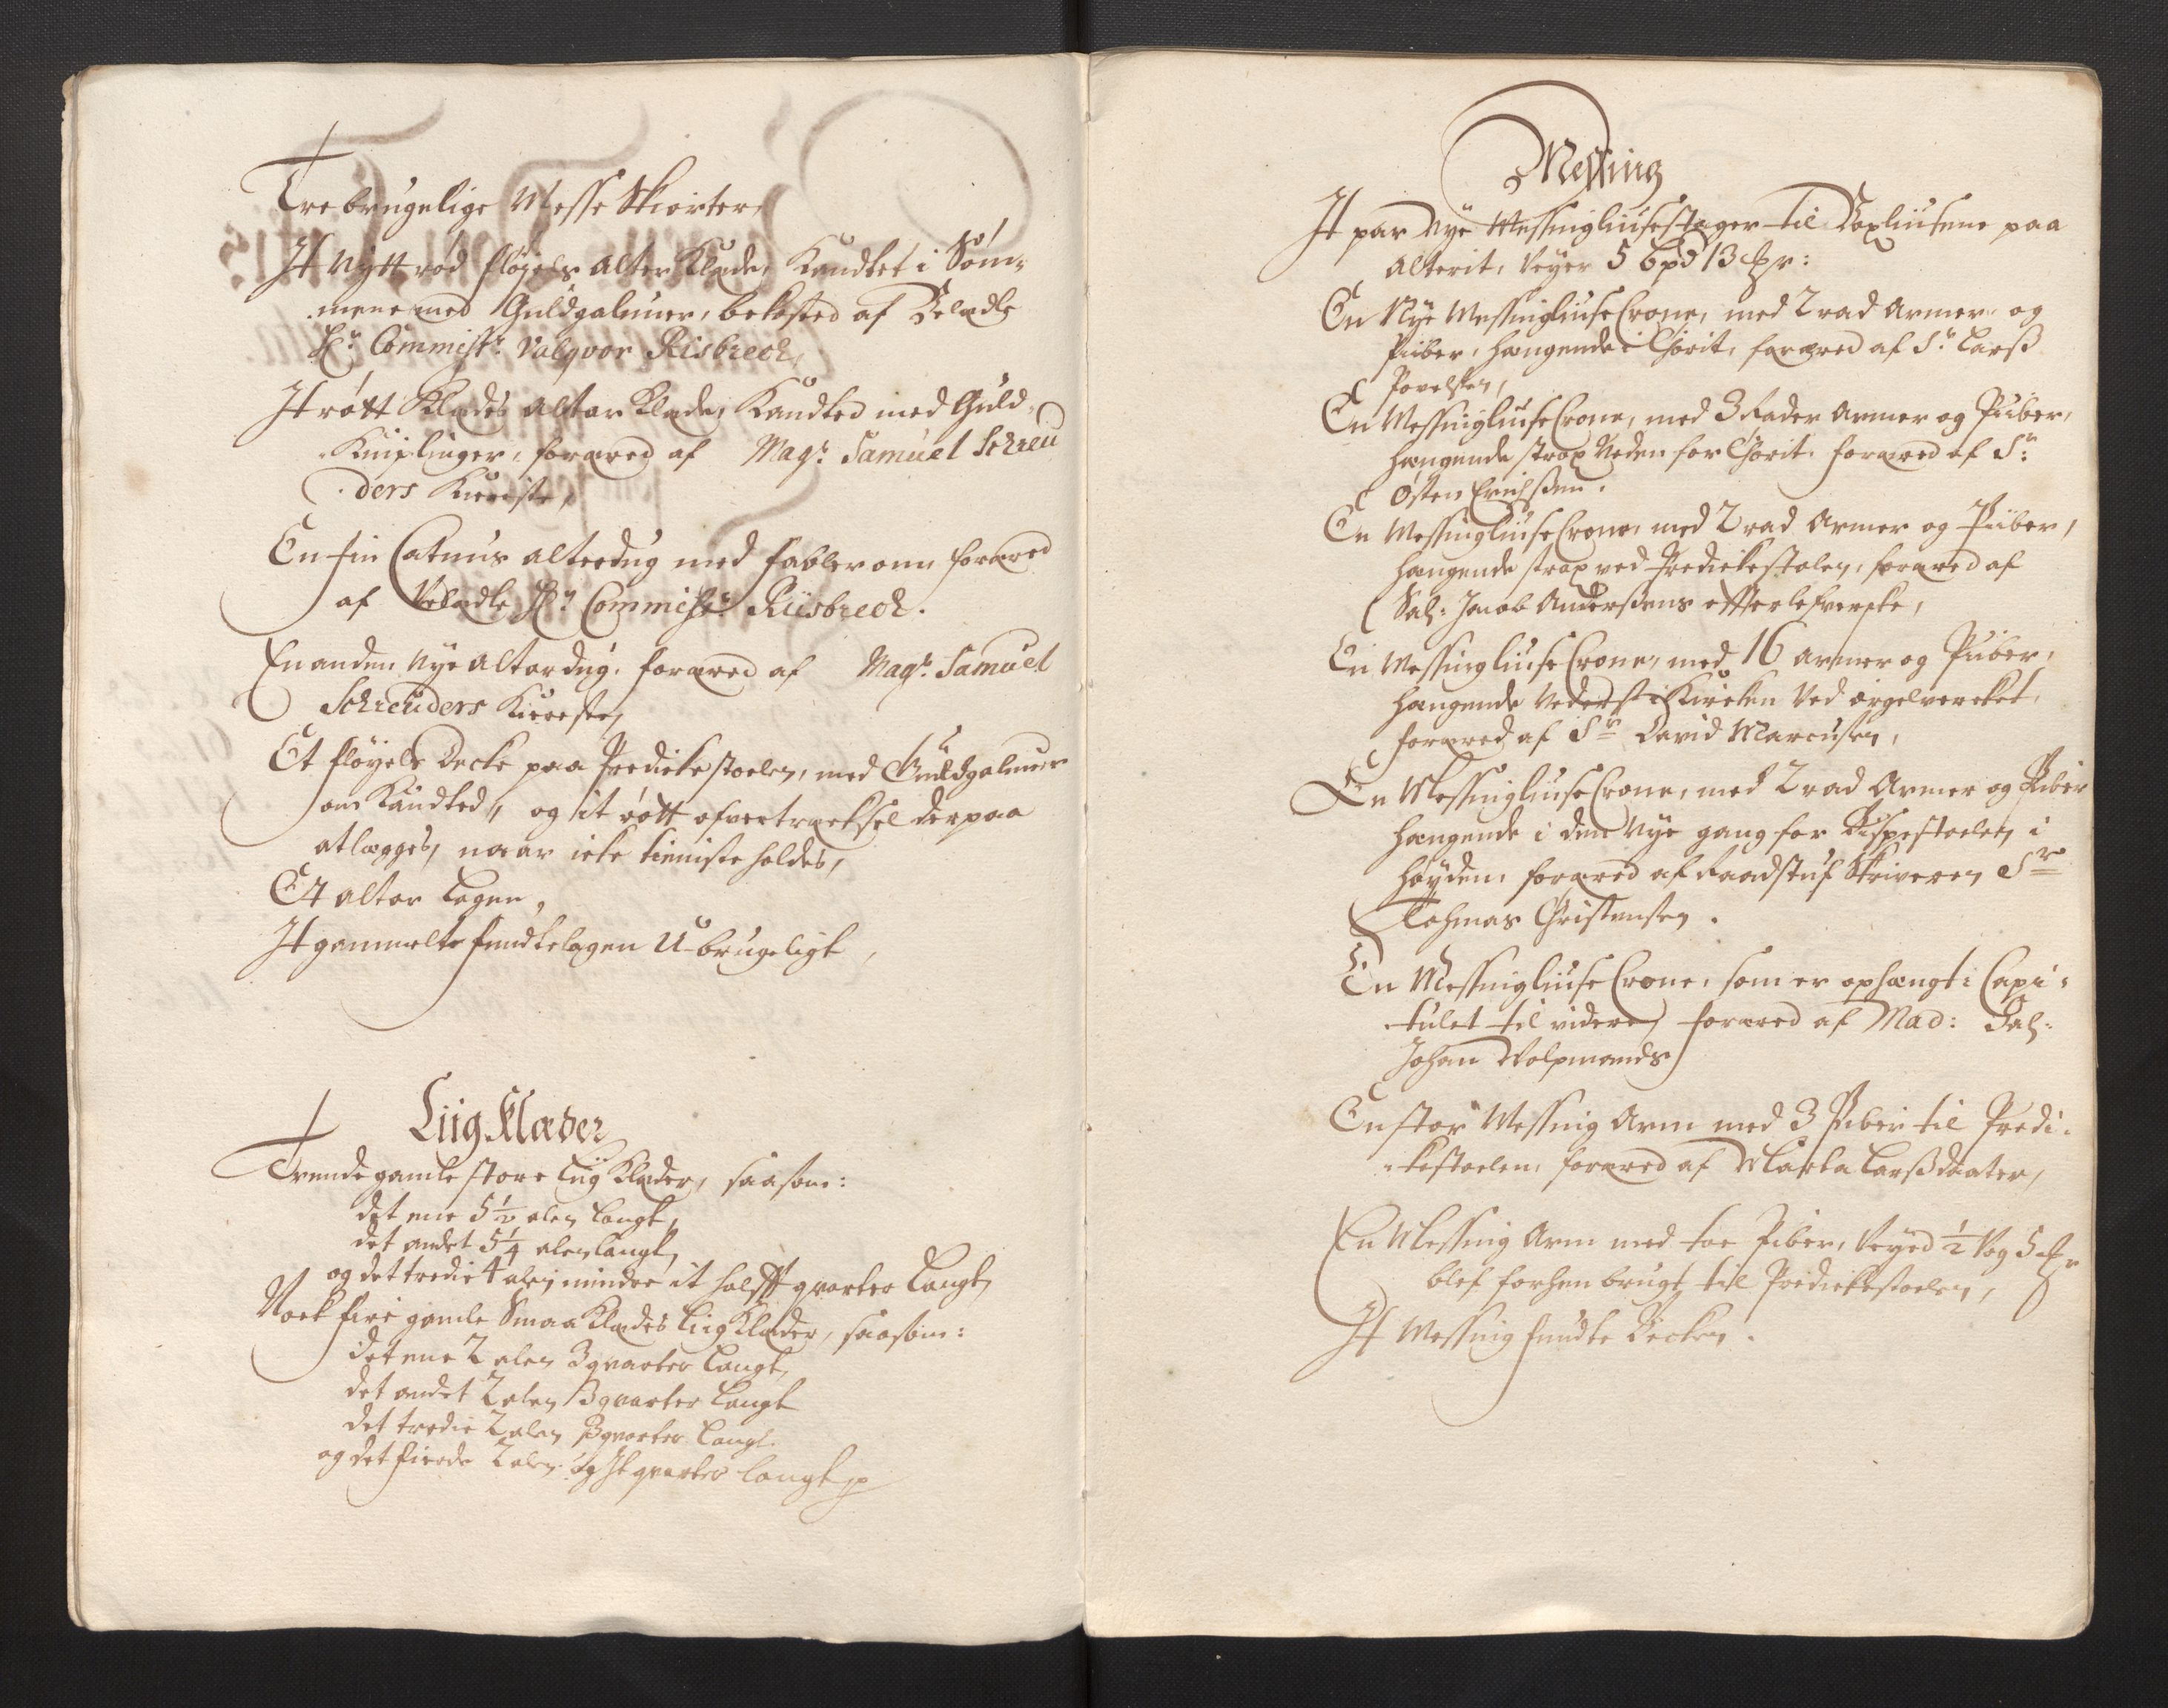 Tre brugelige Messe Skiorter,
It Nytt rød fløyels Alter Klæde, Kandtet i Søm-
mene med Guldgaluner, bekosted af Velædle
Hr. Commisr. Valqvor Risbrech,
It røtt Klædes Altar Klæde, Kandted med Guld-
Kniplinger, foræred af Magr. Samuel Schreu
ders Kiereste,
En fin Cattuns alterdug med Kabler om foræred
af Velædle Hr. Commissr. Riisbrech.
En anden Nye Altardug, foræred af Magr. Samuel
Schreuders Kiereste,
Et fløyels Decke paa Predickestoelen, med Guldgaluner
om Kandted, og it røtt ofvertræcksel derpaa
at lægges, naar icke tienniste holdes,
Et altar Lagen,
It gammelt fundtelagen U-brugeligt,
Liig Klæder
Trende gamle store Liig Klæder, saasom:
det ene 5 1/2 alen langt,
det andet 5 1/4 alen langt,
og det tredie 4 alen, mindre it halfft qvarter langt,
Noch fire gamle Smaa Klædes Liig Klæder, saasom:
det ene 2 alen 3 qvarter langt,
det andet 2 alen 3 qvarter langt
det tredie 2 alen 3 qvarter langt.
og det fierde 2 alen og It qvarter langt
Messing
It par Nye Messing liusestager til Voxliusene paa
Alterit, Veyer 5 bpd 13
En Nye Messing liuse Crone, med 2 rad Armer og
Piiber, hængende i Chorit, foræred af Sr. Larss
Povelsen,
En Messing liuse Crone, med 3 Rader Armer og Piiber,
hængende strax Neden for Chorit, foræred af Sr.
Østen Erichssen.
En Messing liuse Crone, med 2 rad Armer og Piiber,
hængende strax ved Predickestolen, foræred af
Sal: Jacob Anderssens efterlefverske,
En Messing liuse Crone, med 16 armer og Piiber,
hængende Nederst i Kircken Ved orgelvercket,
foræred af Sr. David Marcussen,
En Messing liuse Crone, med 2 rad Armer og Piber
hængende i den Nye gang for Bispestoelen i
høyden, foræred af Raadstuf Skriveren Sr.
Tohmas Christensen.
En Messing liuse Crone, som er ophængt i Capi-
tulet til videre foræred af Mad: Sal:
Johan Wolpmands
En stor Messing Arm med 3 Piber til Predi-
ckestoelen, foræred af Marta Larssdaater,
En Messing Arm med toe Piber, Veyed 1/2 Vog 5
blef forhen brugt til Predickestoelen,
It Messing fundte Becken.